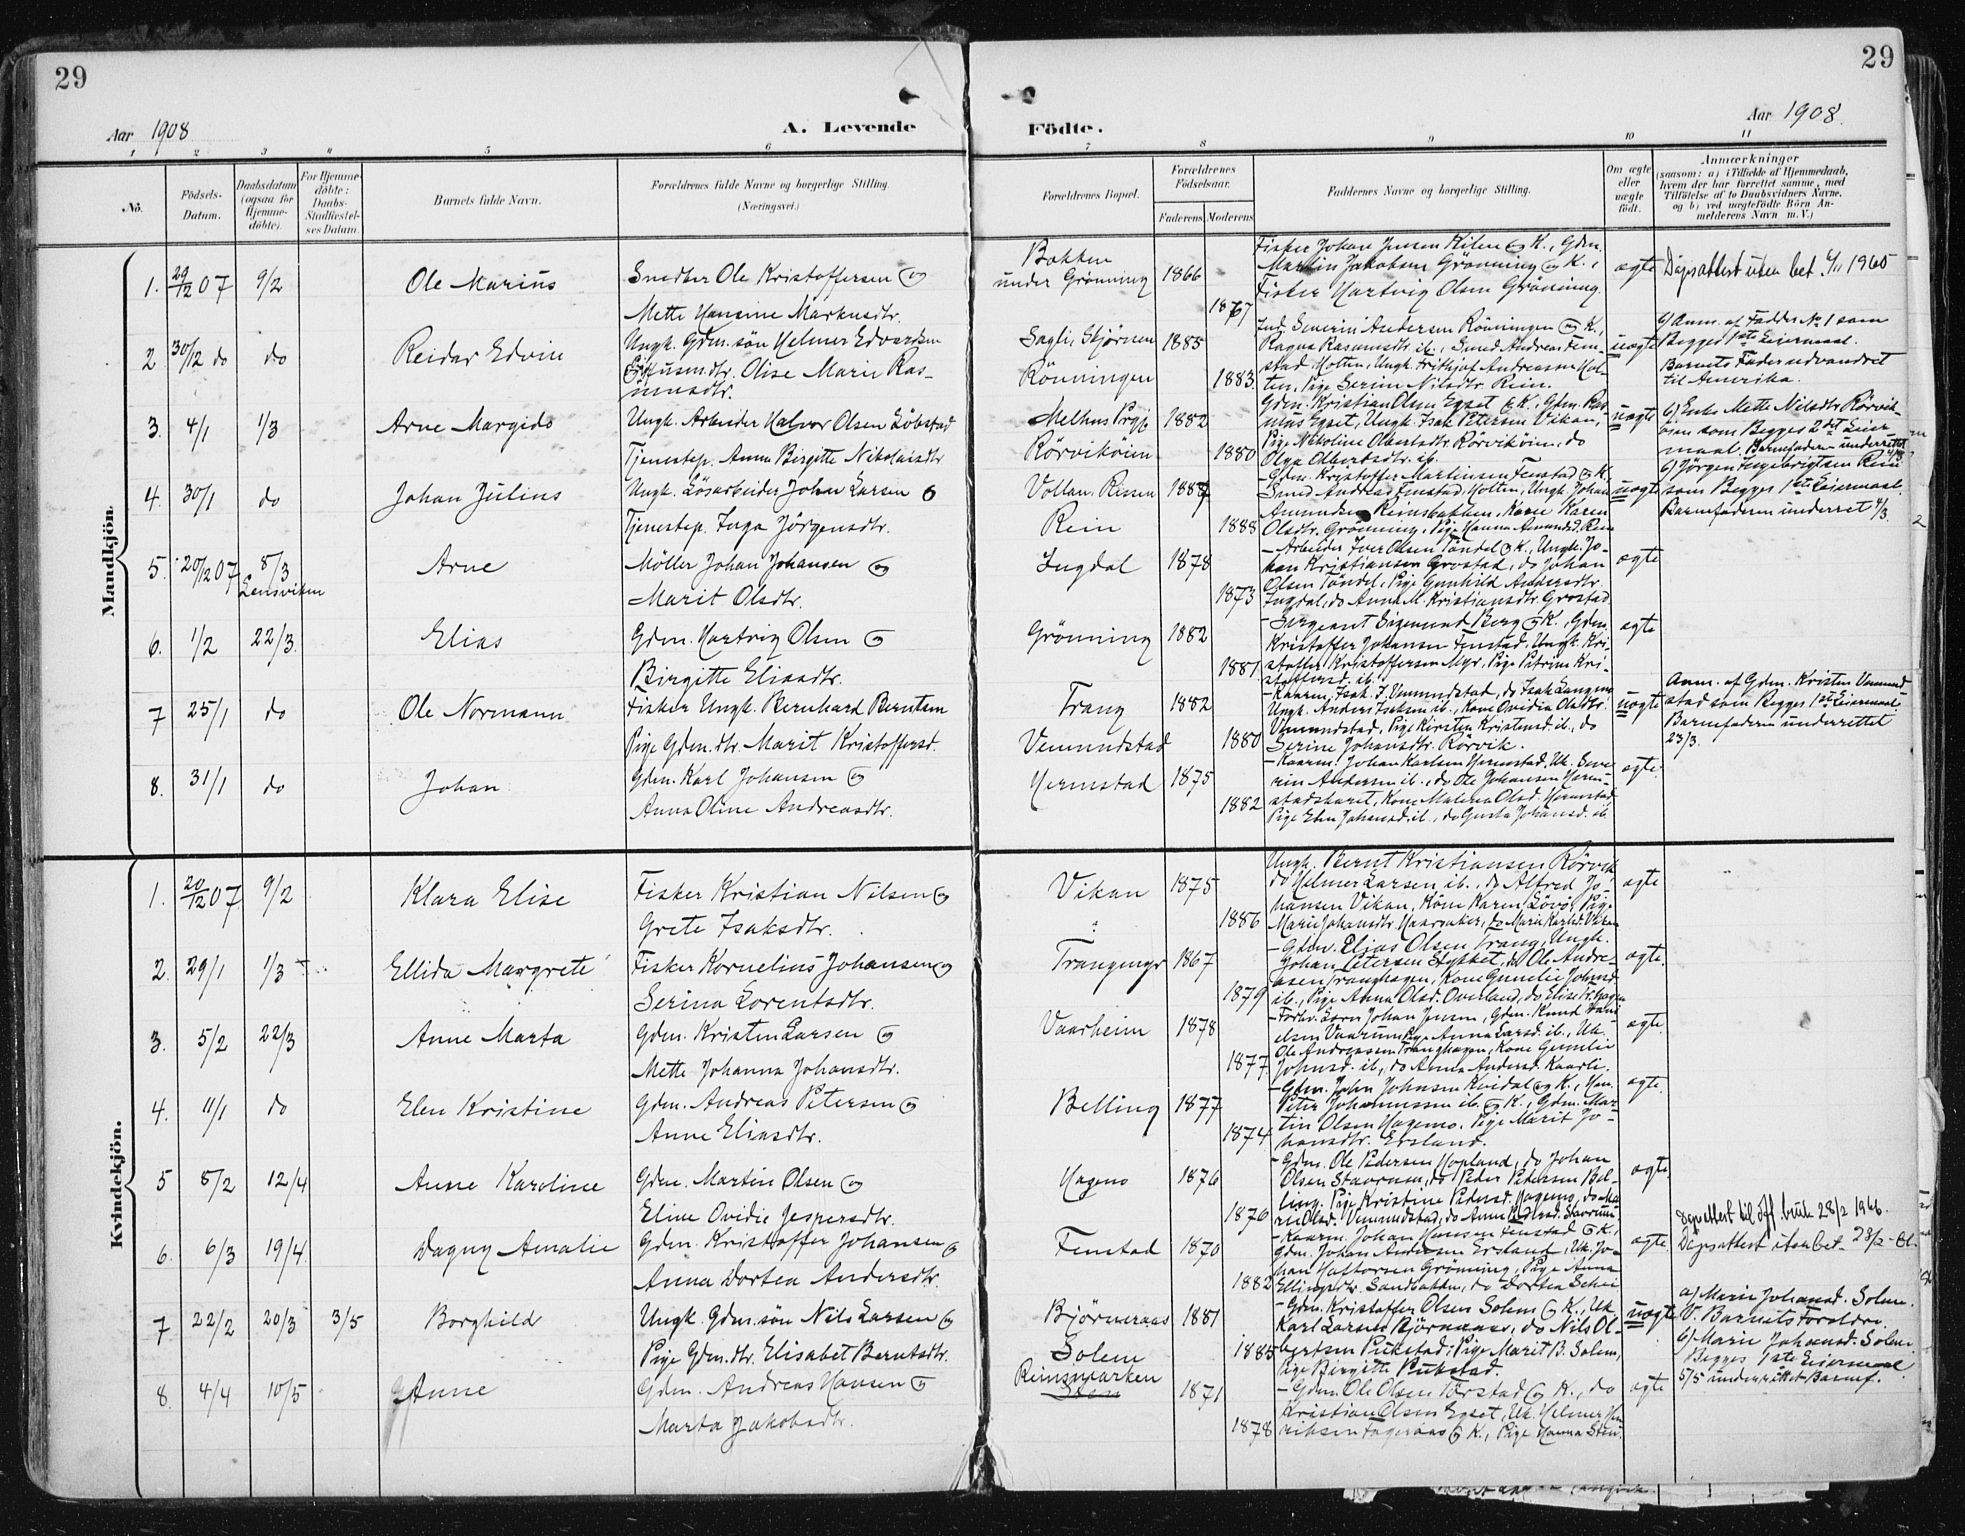 29
29
Aar 1908
A. Levende
Födte.
Aar 1908.
1 2 3 4 5 6 7 8 9 10 11
No.
Födsels-
Datum.
Daabsdatum
(ogsaa for
Hjemme-
döbte).
For Hjemme-
döbte:
Daabs-
Stadfæstel-
ses Datum.
Barnets fulde Navn.
Forældrenes fulde Navne og borgerlige Stilling.
(Næringsvei.)
Forældrenes Bopæl.
Forældrenes
Födselsaar.
Faderens Moderens
Faddernes Navne og borgerlige Stilling.
Om ægte
eller
uægte
födt.
Anmærkninger
(saasom: a) i Tilfælde af Hjemmedaab,
hvem der har forrettet samme, med
Tilföielse af to Daabsvidners Navne,
og b) ved uægtefödte Börn An-
melderens Navn m. V.)
Mandkjön.
1. 29/12 07 9/2 Ole Marius Snedker Ole Kristoffersen og
Mette Hansine Markusdtr.
Bakken
under Grönning 1866
1867
Fisker Johan Jensen Kilen og K., Gdm.
Martin Jakobsen Grönning og K.,
Fisker Hartvig Olsen Grönning.
ægte
Daasattest uten bet. 4/11 1965
2 30/12 do do Reidar Edvin Ungk. Gdm. sön Helmer Edvardsen
Husmdtr. Olise Marie Ras-
musdtr.
Sagli, Stjörnen 1885
Rönningen 1883
Ind. Severin Andersen Rönningen og K.,
Ragna Rasmusdtr. ib., Smed Andreas Fen-
stad Holten, Ungk. Frithjof Andreassen Hol-
ten, Pige Serine Nilsdtr. Rein.
uægte
b) Anm. af Fadder No 1 som
Begges 1ste Leiermaal.
Barnets Fader udvandret
til Amerika.
3. 4/1 1/3 Arne Margido Ungk. Arbeider Halvor Olsen Löbstad
Tjenestep. Anna Birgitte Nikolaisdtr
Melhus Prgj. 1882
Rörviköien 1880
Gdm. Kristian Olsen Egset og K., Gdm. Ras-
mus Egset, Ungk. Isak Petersen Vikan,
Pige Nikoline Olbertsdtr. Rörviköien, do
Olga Olbertsdtr. ib.
uægte
b) Enke Mette Nilsdtr Rörvik-
öien som Begges 2det Leier-
maal. Barnefaderen underrettet
4/3
4. 30/1 do Johan Julius Ungk. Lösarbeider Johan Larsen o
Tjenestep. Inga Jörgensdtr.
Vollan, Rissen 1887
Rein 1888
Gdm. Kristoffer Martinsen Fenstad og K.
Smed Andreas Fenstad, Holten, Ungk. Johan
Amundsen Reinsbakken, Kone Karen
Olsdtr. Grönning, Pige Hanna Amundsd. Rein
uægte
b) Jörgen Ingebrigtsen Rein
som Begges 1ste Leiermaal.
Barnefaderen underret 4/3.
5. 20/12 07 8/3
Lensviken
Arne Möller Johan Johansen og
Marit Olsdtr.
Ingdal 1878
1873
Arbeider Iver Olsen Töndel og K., Ungk. Jo-
han Kristiansen Grostad, do Johan
Olsen Töndel, Pige Gunhild Andersdtr.
Ingdal, do Anna M. Kristiansdtr. Grostad
ægte
6. 1/2 22/3. Elias Gdm. Hartvig Olsen og
Birgitte Eliasdtr.
Grönning 1882
1881
Sergeant Sigemund Berg og K., Gdm.
Kristoffer Johansen Fenstad, Ungk. Kri-
stoffer Kristoffersen Myr, Pige Petrine Kri-
stoffersd. ib.
ægte
7 25/1 do Ole Normann Fisker Ungk. Bernhard Berntsen
Pige Gdm. dtr. Marit Kristoffersd.
Trang 1882
Vemundstad 1880
Kaarm. Isak J. Vemundstad, do Isak
Ungk. Anders Isaksen ib., Kone Ovidia Olsdtr.
Vemundstad, Pige Kirsten Kristensd. ib., do
Serine Johansdtr. Rörvik.
uægte
Anm. af Gdm. Kristen Vemund-
stad som Begges 1ste Leiermaal.
Barnefaderen underrettet
23/3.
8. 31/1 do Johan Gdm. Karl Johansen og
Anna Oline Andreasdtr.
Hermstad 1875
1882
Kaarm. Johan Karlsen Hermstad, Uk. Seve-
rin Andersen ib., do Ole Johansen Herm-
stadskaret, Kone Malena Olsd. Hermstad
Pige Elen Johansd. ib., do Gusta Johansd. ib.
ægte
Kvindekjön.
1. 20/12 07 9/2 Klara Elise Fisker Kristian Nilsen og
Grete Isaksdtr.
Vikan 1875
1886
Ungk. Bernt Kristiansen Rörvik
do Helmer Larsen ib., do Alfred Jo-
hansen Vikan, Kone Karen Lövö, Pige
Marie Johansdtr. Haarsaker, do Marie Karlsd. Vikan
ægte
2. 29/1 1/3 Ellida Margrete Fisker Kornelius Johansen og
Serina Lorentsdtr.
Trangmyr 1867
1879
Gdm. Elias Olsen Trang, Ungk.
Johan Petersen Stykket, do Ole Andre-
asen Tranghagen, Kone Gunelie Johnsd.
ib., Pige Anna Olsd. Overland, do Elise
ægte.
3. 5/2 22/3 Anne Marta Gdm. Kristen Larsen og
Mette Johanna Johansdtr.
Vaarheim 1878
1877
Forhv. Lærer Johan Jensen, Gdm. Knud
Pige Anna Larsd. ib., Uk.
Ole Andreassen Tranghagen, Kone Gunelie
Johnsd. ib., do Anna Andersd. Kaarli.
ægte.
4. 11/1 do Elen Kristine Gdm. Andreas Petersen og
Anne Eliasdtr.
Belling 1877
1874
Gdm. John Johnsen Kvidal og K., Hm.
Peter Johannessen ib. og K., Gdm. Mar-
tin Olsen Hagemo, Pige Marit Jo-
hansdtr. Ersland.
ægte.
5 8/2 12/4 Anne Karoline Gdm. Martin Olsen og
Eline Ovidie Jespersdtr.
Hagemo 1876
1876
Gdm. Ole Pedersen Hopland, do Johan
Olsen Stavrum, do Peder Petersen Bel-
ling, Pige Kristine Pedersd. Hagemo, do Ma-
rie Olsd. Vemundstad, do Anne Stavrum
ægte
6. 6/3 19/4. Dagny Amalie Gdm. Kristoffer Johansen og
Anna Dortea Andersdtr.
Fenstad 1870
1882
Kaarm. Johan Hansen Fenstad og K.,
Gdm. Johan Andersen Ersland, Uk. Jo-
han Halvorsen Grönning, Pige Anna
Ellingsdtr. Sandbakken, do Dortea Schei
ægte.
Daasattest til off bruk 28/2 1966.
Daasattest uten bet. 28/2-61.
7 22/2 20/3 3/5 Borghild Ungk. Gdm. sön Nils Larsen og
Pige Gdm. dtr. Elisabet Berntsdtr.
Björneraas 1881
Solem 1885
Gdm. Kristoffer Olsen Solem og K., Uk.
Karl Larsen Björneraas, do Nils Ol-
bertsen Pukstad, Pige Marit B. Solem,
Pige Birgitte Pukstad.
uægte
a) Marie Johansd. Solem.
V. Barnets Forældre.
b) Marie Johansd. Solem
Begges 1ste Leiermaal
5/5 underrettet Barnef.
8. 4/4 10/5 Anne Gdm. Andreas Hansen og
Marta Jakobsdtr.
Reinsmarken
1871
1878
Gdm. Ole Olsen Pörstad og K., do
Kristian Olsen Egset, Uk. Helmer Hen-
riksen Fageraas og K., Pige Hanna
ægte